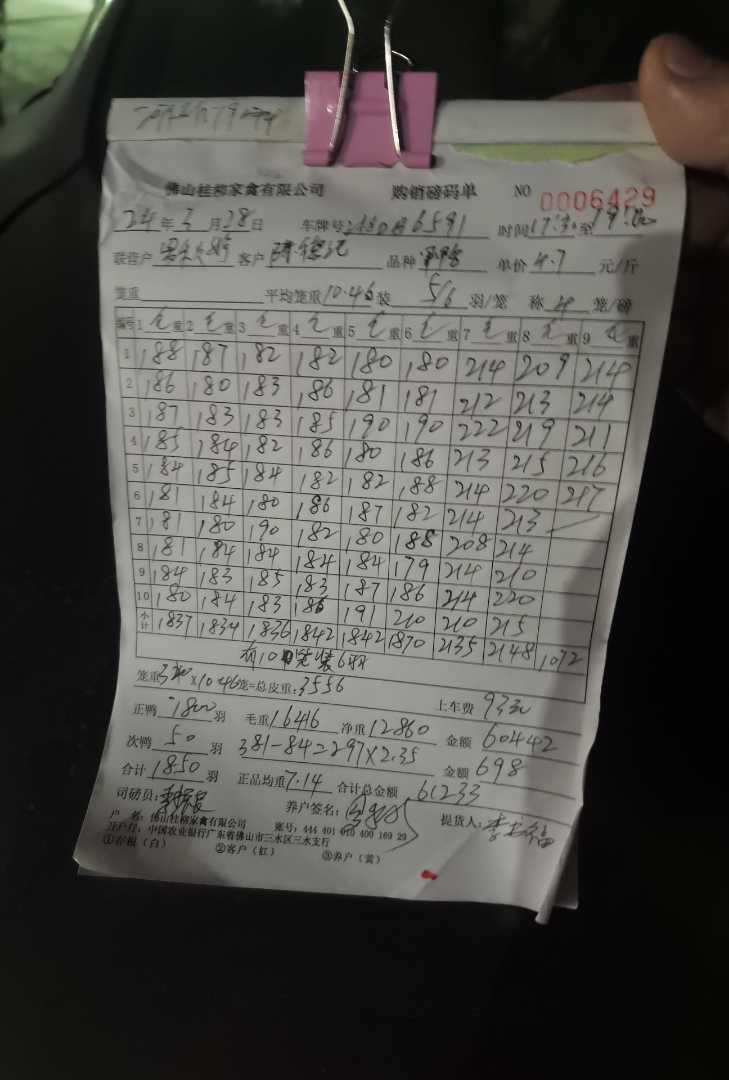 佛山桂柳家禽有限公司 购销磅码单 NO 0006429
24年3月28日 车牌号 6591 时间17:3 至19:00
联营户 客户 陈德记 品种 单价4.7元/斤
笼重 平均笼重10.46装5/6羽/笼 称4笼/磅
编号 1毛重 2毛重 3毛重 4毛重 5毛重 6毛重 7毛重 8毛重 9毛重
1 188 187 182 182 180 180 214 209 214
2 186 180 183 186 181 181 212 213 214
3 187 183 183 185 190 190 222 219 211
4 185 184 182 186 180 186 213 215 216
5 184 185 184 182 182 188 214 220 217
6 181 184 180 186 187 182 214 213
7 181 180 190 182 180 188 208 214
8 181 184 184 184 184 179 214 210
9 184 183 185 183 187 186 214 220
10 180 184 183 186 191 210 210 215
小计 1837 1834 1836 1842 1842 1870 2135 2148 1072
有10笼装6羽
笼重340×10.46笼=总皮重:3556 上车费 93
正鸭1800羽 毛重16416 净重12860 金额60442
次鸭50羽 381-84=297×2.35 金额698
合计1850羽 正品均重7.14 合计总金额61233
司磅员: 养户签名: 提货人:
户 名: 佛山桂柳家禽有限公司 账号: 444 401 010 400 169 29
开户行: 中国农业银行广东省佛山市三水区三水支行
①存根(白) ②客户(红) ③养户(黄)